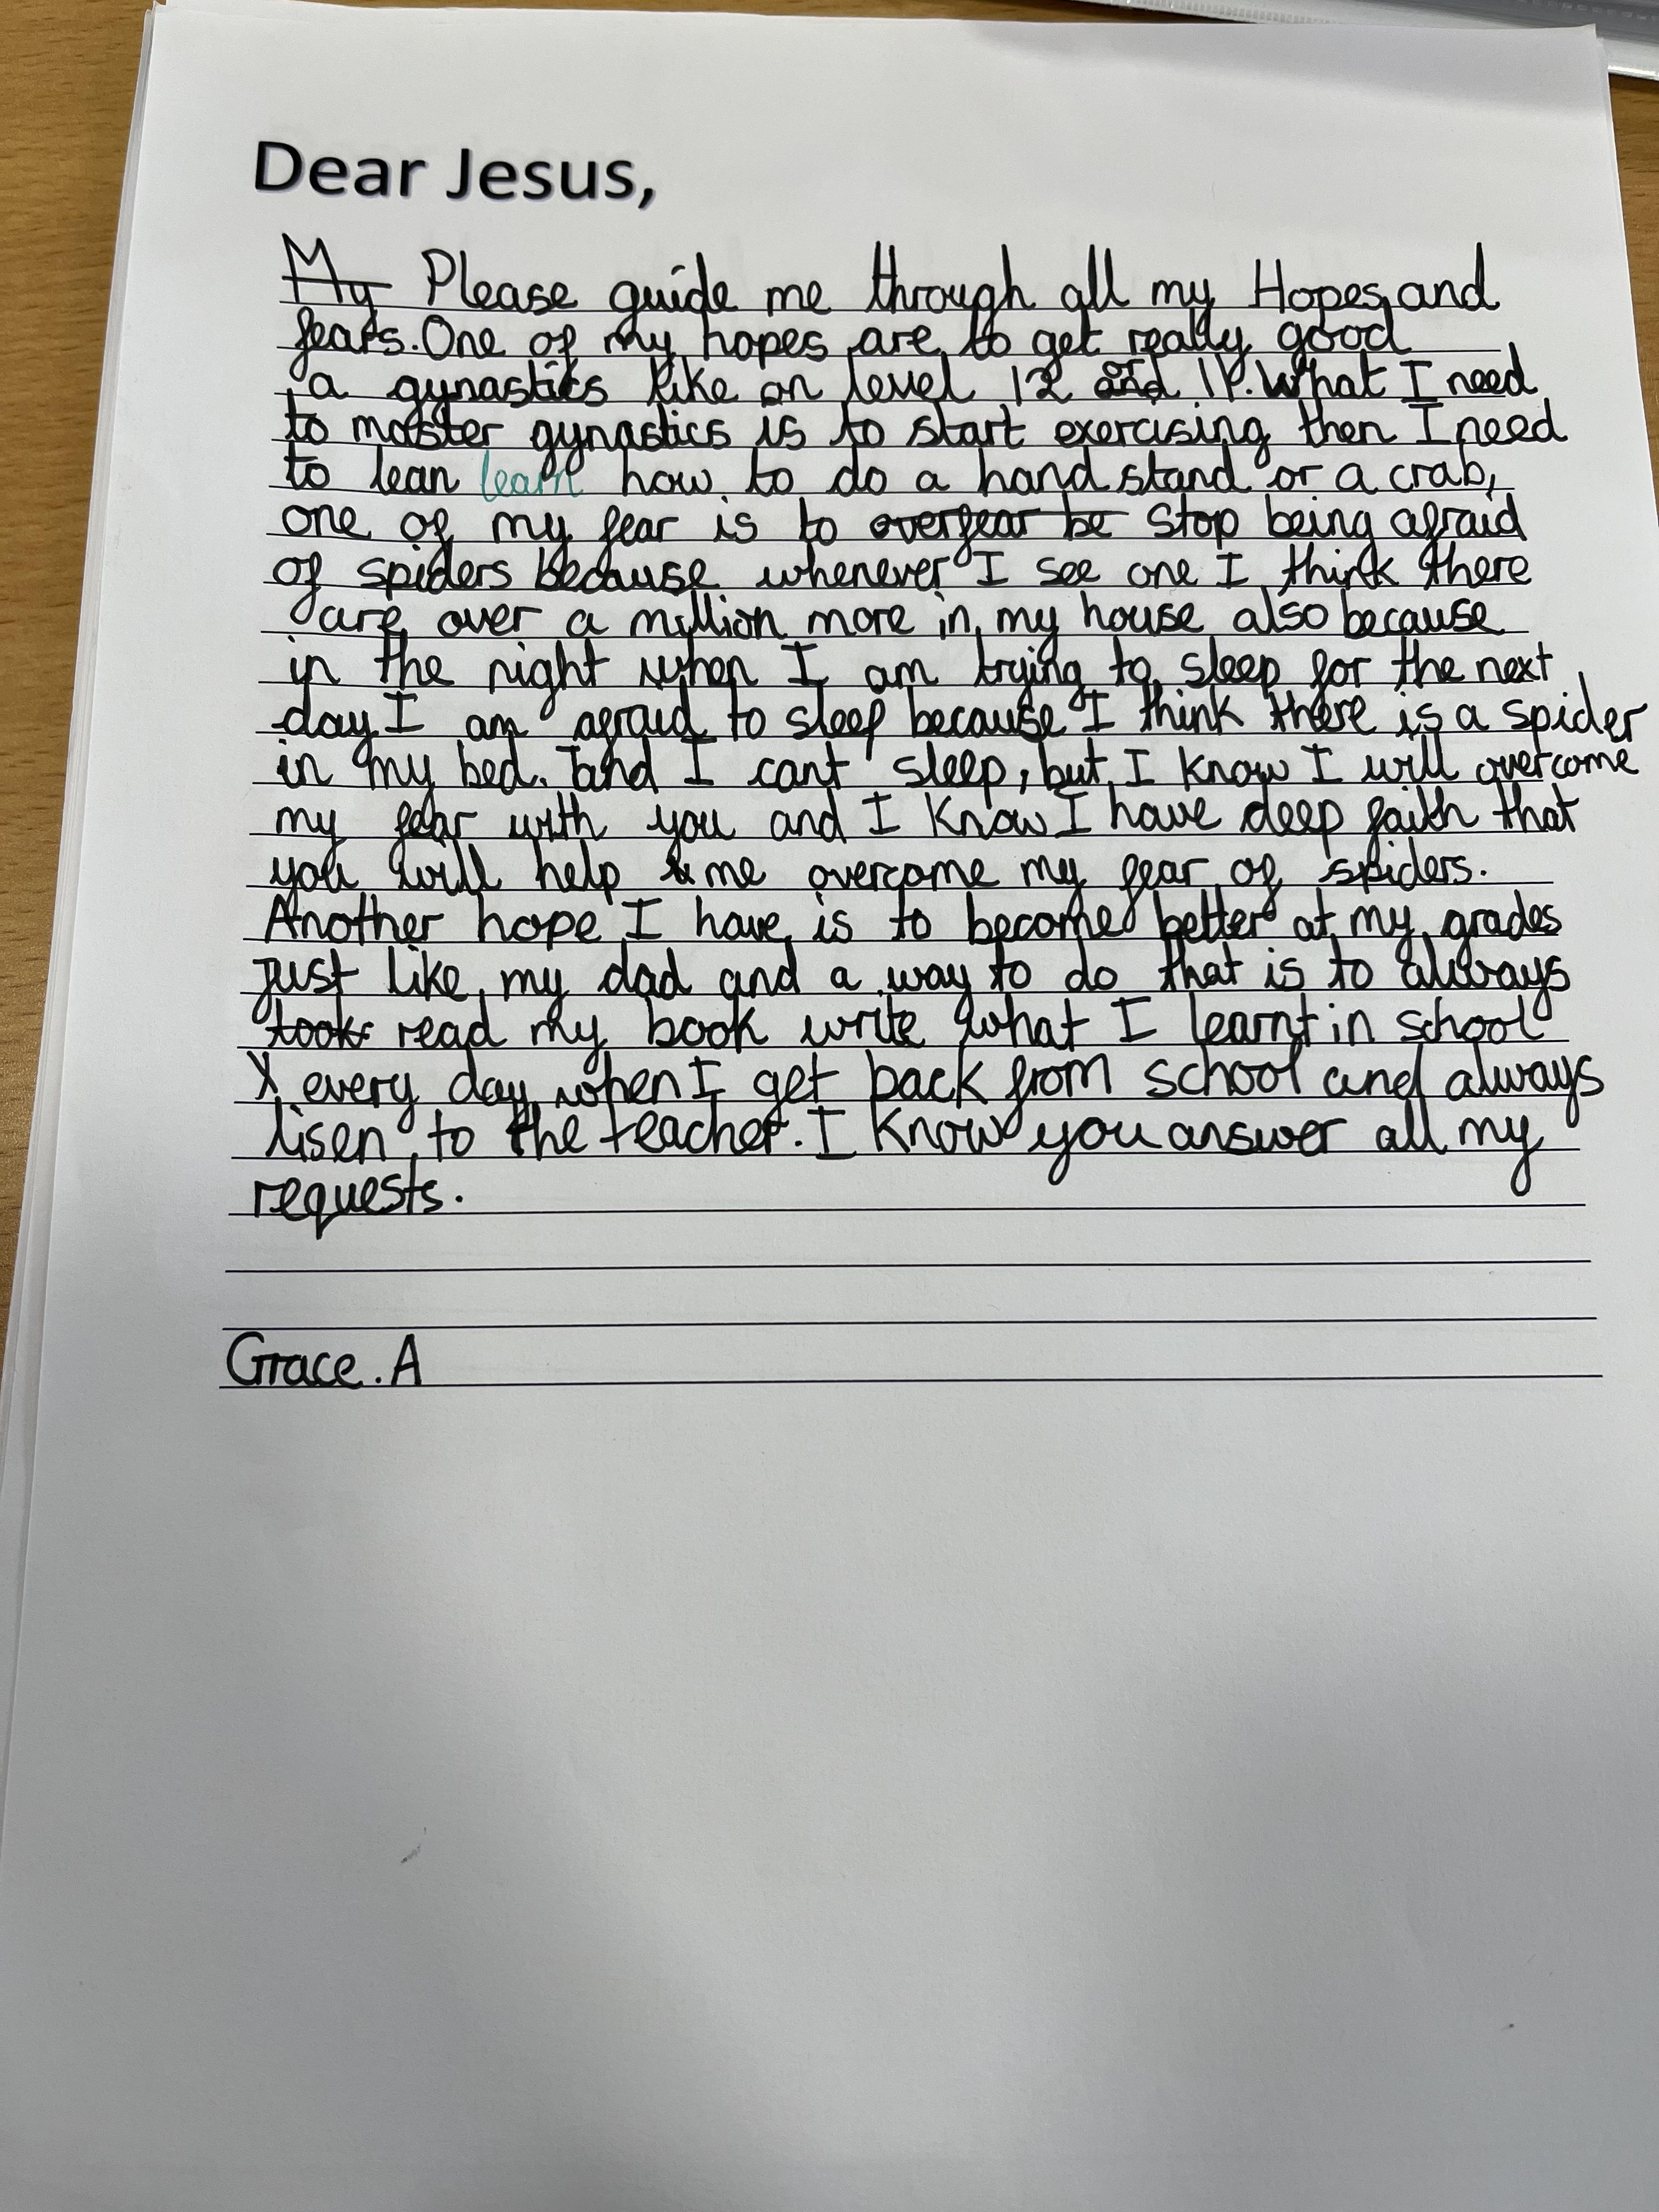 Dear Jesus,
My Please guide me through all my Hopes and
fears. One of my hopes are to get really good
a gynastics like on level 12 or 11. What I need
to master gynastics is to start exercising then I need
to lean learn how to do a hand stand or a crab,
one of my fear is to overfear be stop being afraid
of spiders because whenever I see one I think there
are over a million more in my house also because
in the night when I am trying to sleep for the next
day I am afraid to sleep because I think there is a spider
in my bed. and I cant sleep, but I know I will overcome
my fear with you and I know I have deep faith that
you will help me overcome my fear of spiders.
Another hope I have is to become better at my grades
just like my dad and a way to do that is to always
took read my book write what I learnt in school
every day when I get back from school and always
lisen to the teacher. I know you answer all my
requests.
Grace. A